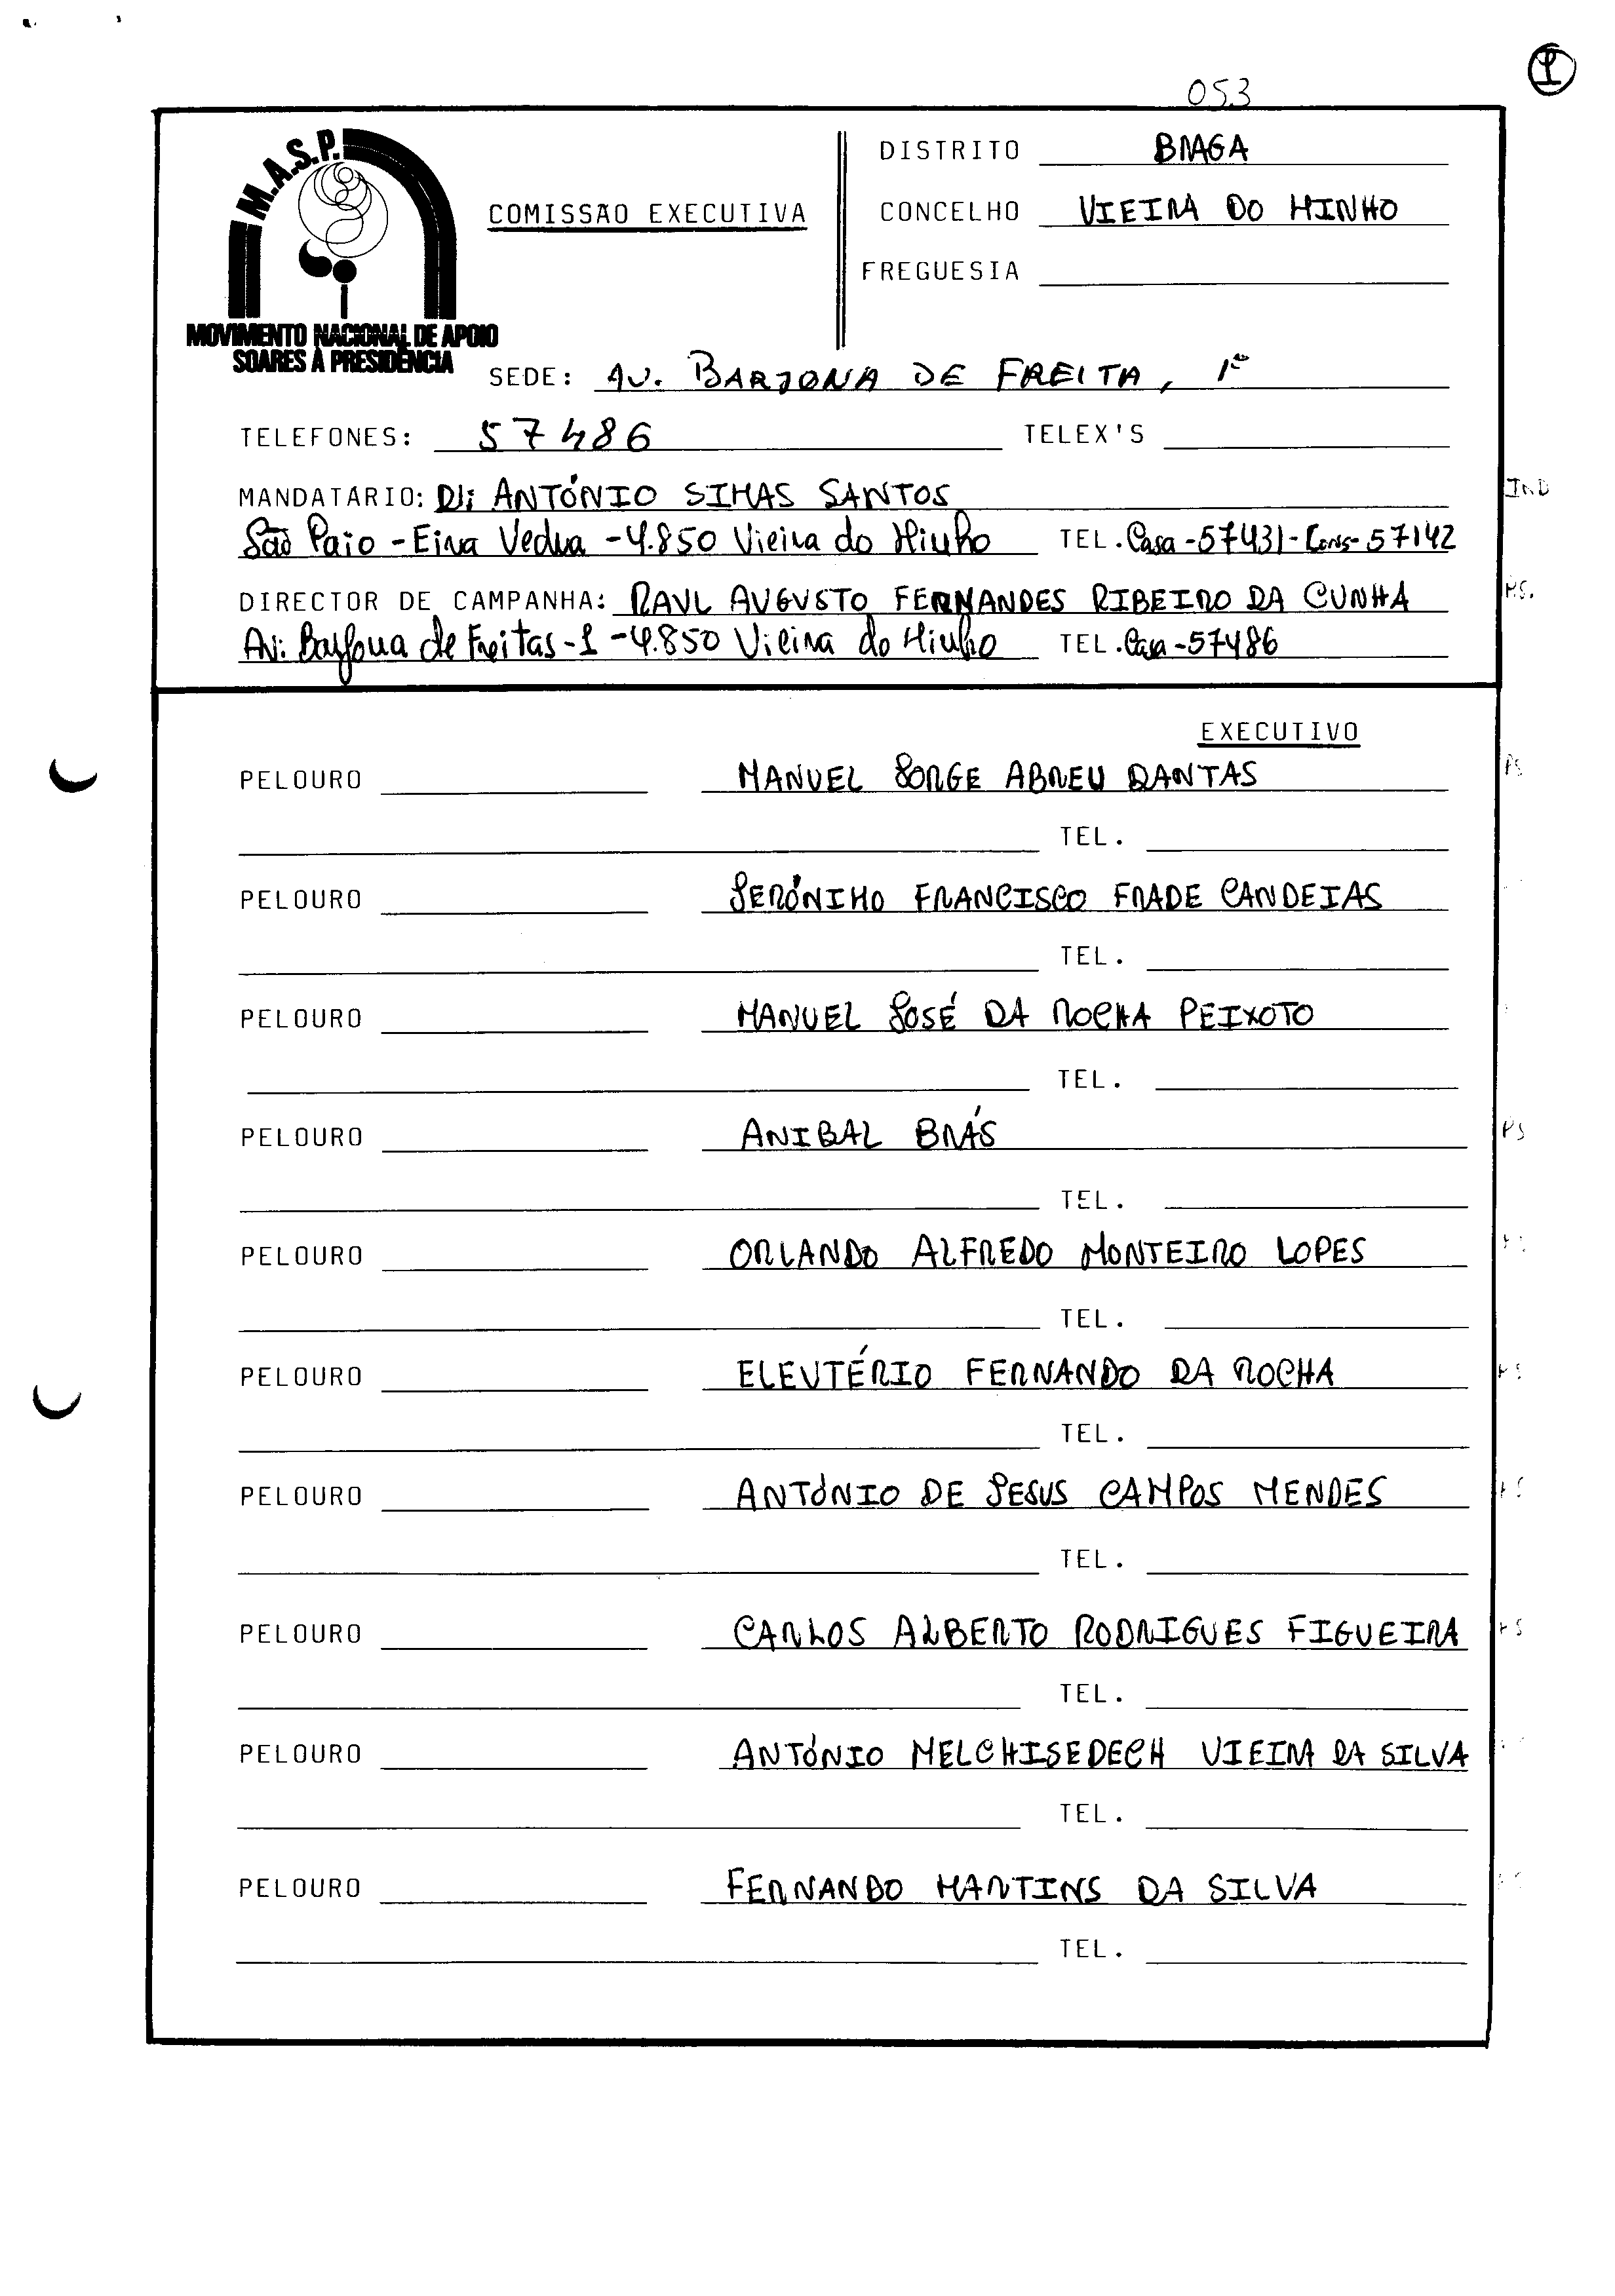 053
M.A.S.P.
MOVIMENTO NACIONAL DE APOIO
SOARES À PRESIDÊNCIA
COMISSÃO EXECUTIVA
DISTRITO BRAGA
CONCELHO VIEIRA DO MINHO
FREGUESIA
SEDE: AV. BARJONA DE FREITA, 1º
TELEFONES: 57486 TELEX'S
MANDATARIO: Dr: ANTÓNIO SIMAS SANTOS IND
São Paio - Eira Vedra - 4.850 Vieira do Minho TEL. Casa - 57431 - Cons - 57142
DIRECTOR DE CAMPANHA: RAUL AUGUSTO FERNANDES RIBEIRO DA CUNHA P.S.
Av: Barjona de Freitas - 1 - 4.850 Vieira do Minho TEL. Casa - 57486
EXECUTIVO
PELOURO MANUEL JORGE ABREU DANTAS PS
TEL.
PELOURO JERÓNIMO FRANCISCO FRADE CANDEIAS
TEL.
PELOURO MANUEL JOSÉ DA ROCHA PEIXOTO
TEL.
PELOURO ANIBAL BRÁS PS
TEL.
PELOURO ORLANDO ALFREDO MONTEIRO LOPES
TEL.
PELOURO ELEUTÉRIO FERNANDO DA ROCHA PS
TEL.
PELOURO ANTÓNIO DE JESUS CAMPOS MENDES PS
TEL.
PELOURO CARLOS ALBERTO RODRIGUES FIGUEIRA PS
TEL.
PELOURO ANTÓNIO MELCHISEDECH VIEIRA DA SILVA
TEL.
PELOURO FERNANDO MARTINS DA SILVA
TEL.